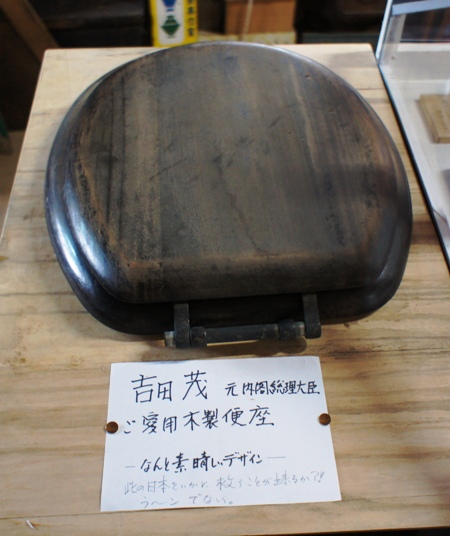 吉田茂 元内閣総理大臣
ご愛用木製便座
―なんと素晴しいデザイン―
此の日本をいかに救うことが出来るか?!
うーン でない。